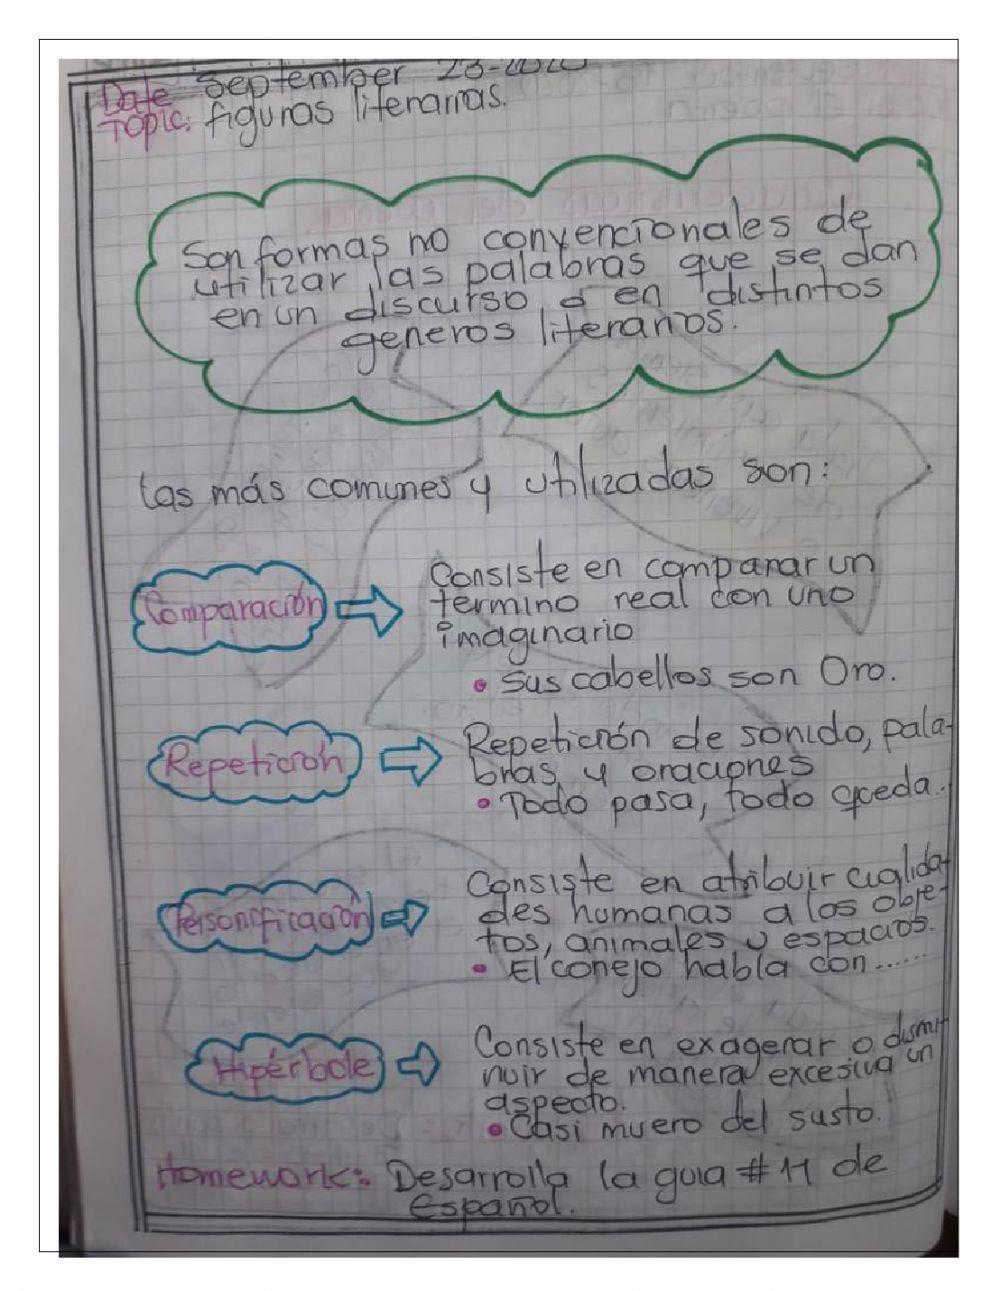 Date September 23-2020
Topic: figuras literarias.
Son formas no convencionales de
utilizar las palabras que se dan
en un discurso o en distintos
generos literarios.
Las más comunes y utilizadas son:
Comparación
Consiste en comparar un
termino real con uno
imaginario
• Sus cabellos son Oro.
Repetición
Repetición de sonido, pala-
bras y oraciones
• Todo pasa, todo queda.
Personificación
Consiste en atribuir cualida-
des humanas a los obje-
tos, animales u espacios.
• El conejo habla con......
Hipérbole
Consiste en exagerar o dismi-
nuir de manera excesiva un
aspecto.
• Casi muero del susto.
Homework: Desarrolla la guia #11 de
Español.